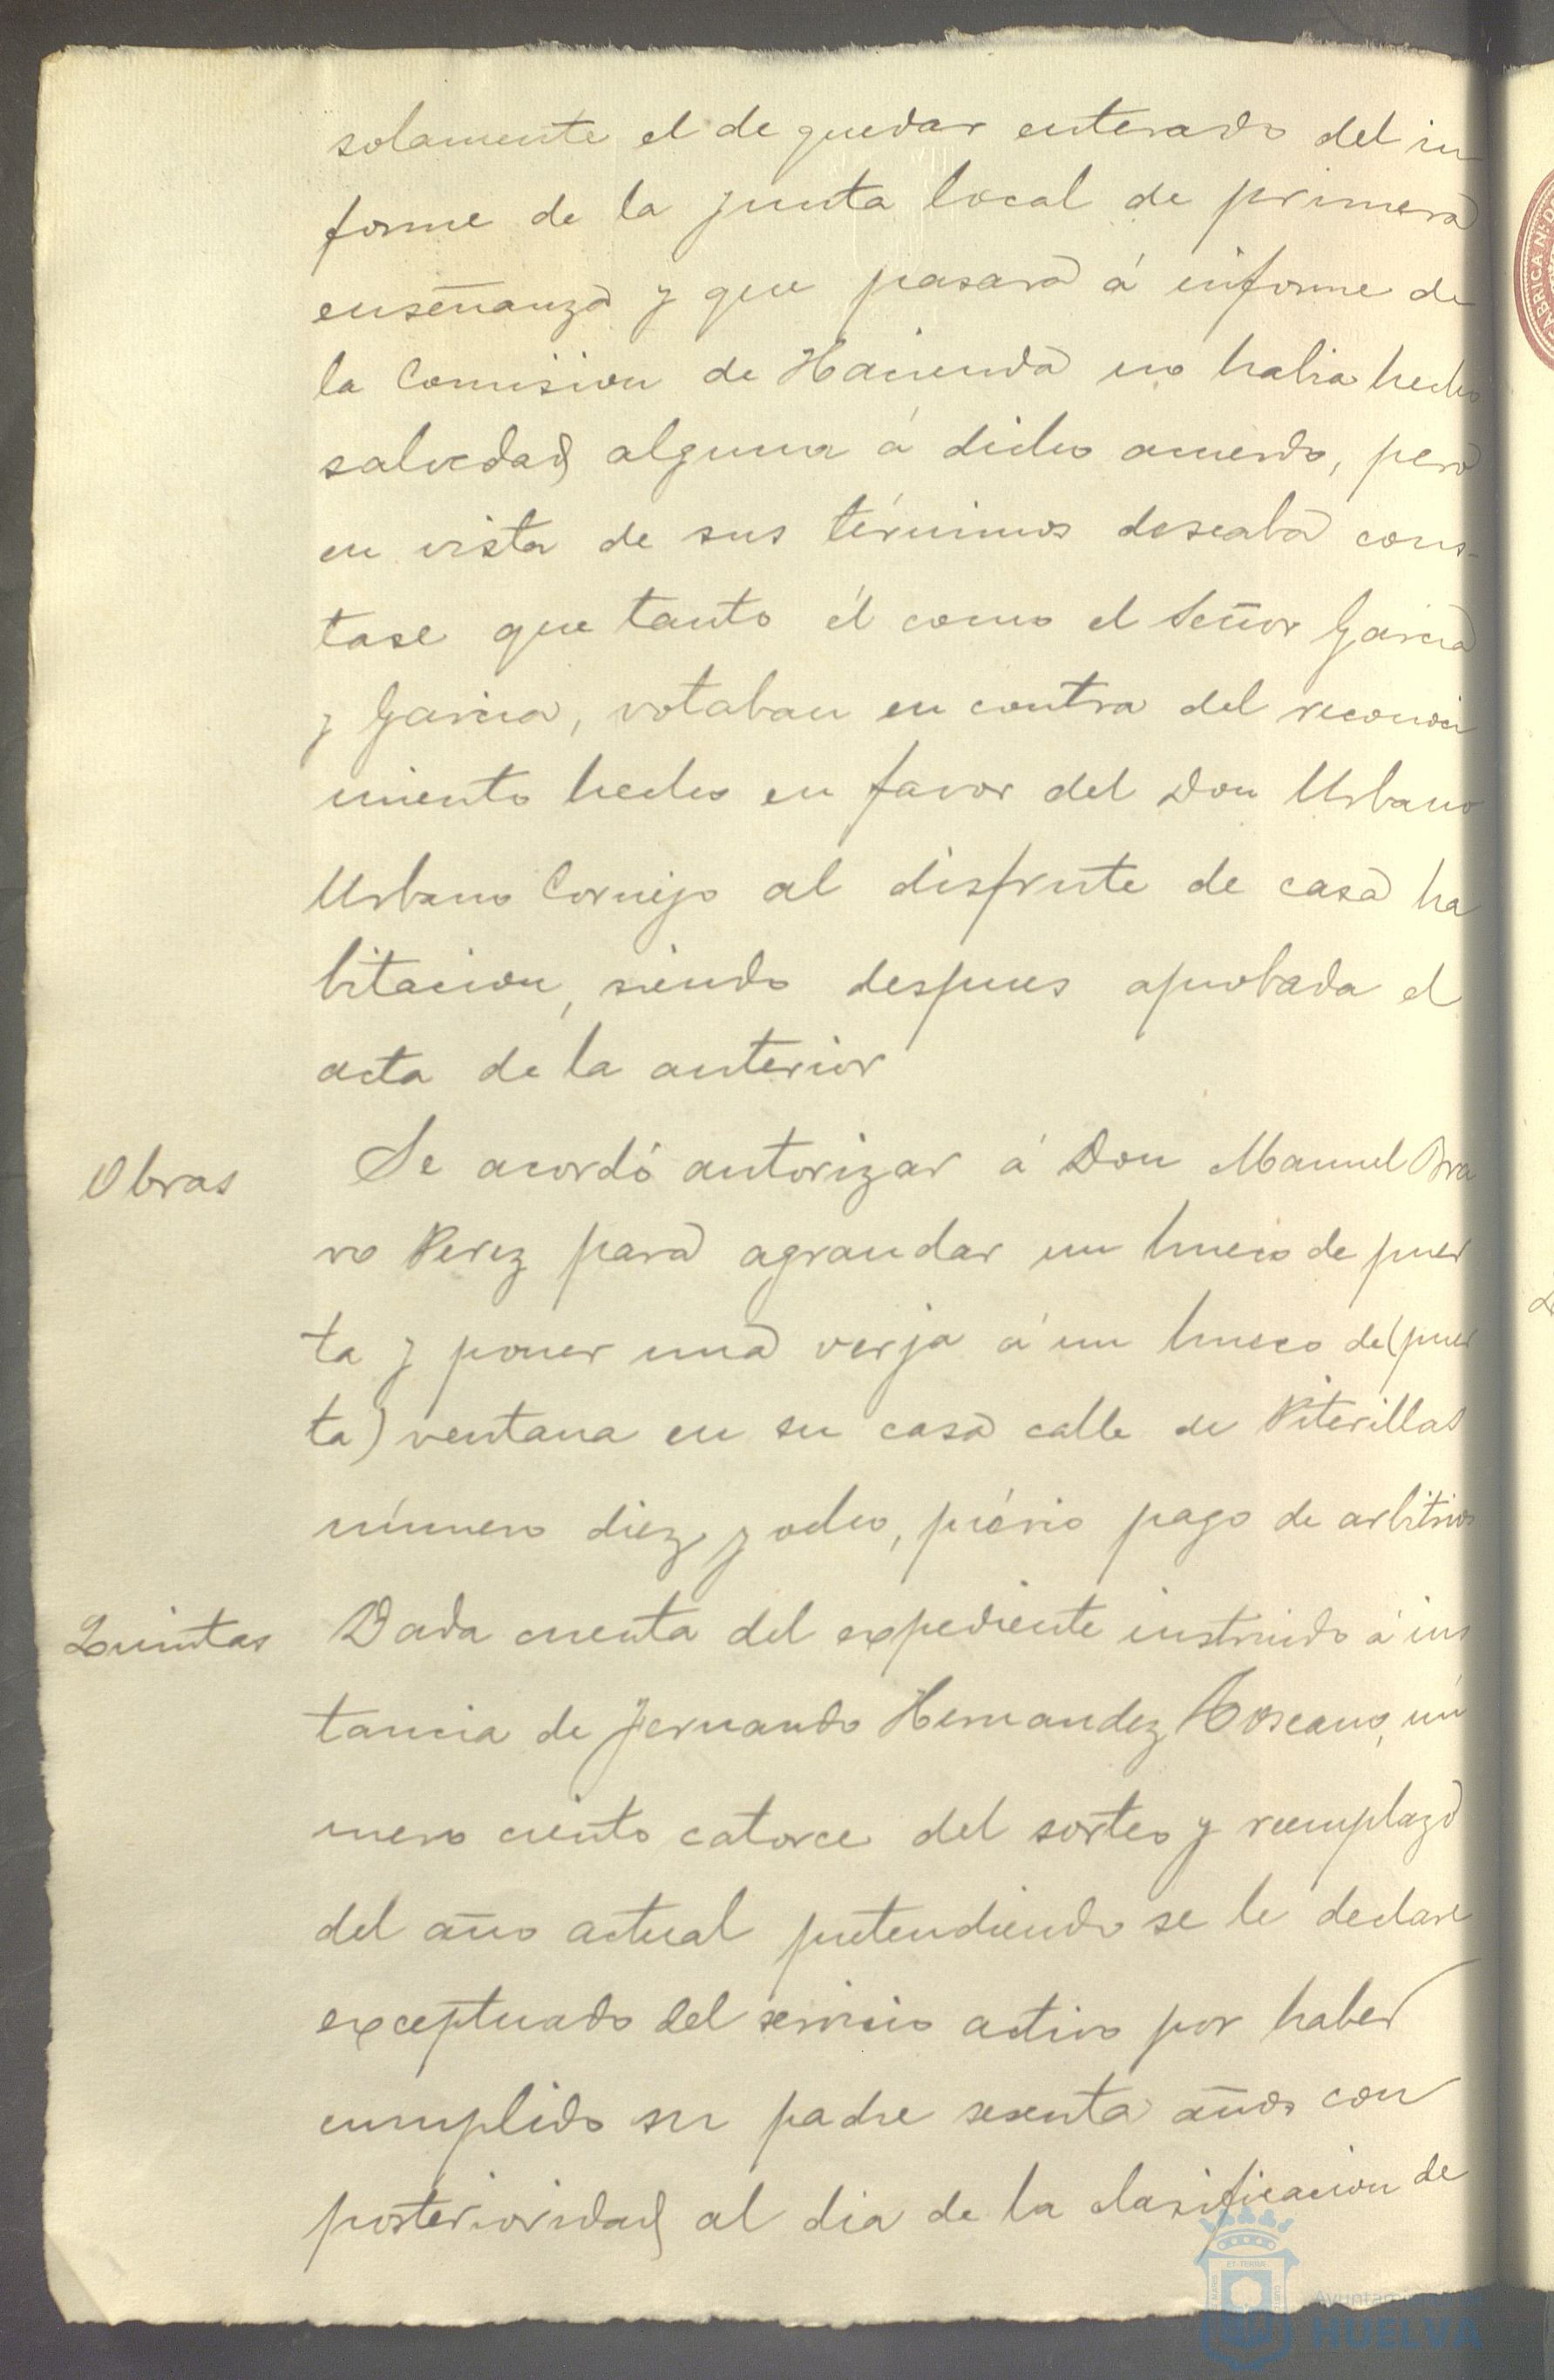 solamente el de quedar enterado del in
forme de la junta local de primera
enseñanza y que pasara á informe de
la Comision de Hacienda no habia hecho
salvedad alguna á dicho acuerdo, pero
en vista de sus términos deseaba cons-
tase que tanto él como el Señor Garcia
y Garcia, votaban en contra del reconoci
miento hecho en favor del Don Urbano
Urbano Cornejo al disfrute de casa ha
bitacion, siendo despues aprobada el
acta de la anterior
Obras Se acordó autorizar á Don Manuel Bra
vo Perez para agrandar un hueco de puer
ta y poner una verja á un hueco de (puer
ta) ventana en su casa calle de Piterillas
número diez y ocho, prévio pago de arbitrios
Quintas Dada cuenta del expediente instruido á ins
tancia de Fernando Hernandez Toscano, nú
mero ciento catorce del sorteo y reemplazo
del año actual pretendiendo se le declare
exceptuado del servicio activo por haber
cumplido su padre sesenta años con
posterioridad al dia de la clasificacion de
Ayuntamiento de
HUELVA